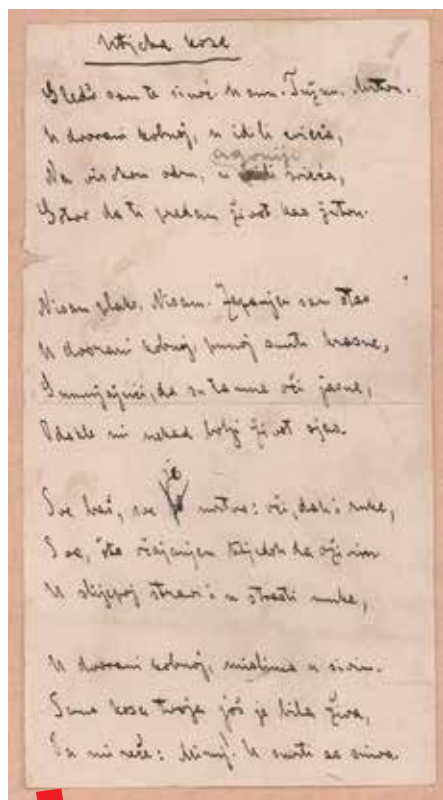 Utjeha kose
Gledo sam te sinoć. U snu. Tužnu. Mrtvu.
U dvorani kobnoj, u idili cvieća,
agoniji
Na visokom odru, u svieća,
Gotov da ti predam život kao žrtvu.
Nisam plako. Nisam. Zapanjen sam stao
U dvorani kobnoj, punoj smrti krasne,
Sumnjajući, da su tamne oči jasne,
Odakle mi nekad bolji život sjao.
je
Sve baš, sve mrtvo: oči, dah i ruke,
Sve, što očajanjem htjedoh da oživim
U slijepoj stravi i u strasti muke,
U dvorani kobnoj, mislima u sivim.
Samo kosa tvoja još je bila živa,
Pa mi reče: Miruj! U smrti se sniva.